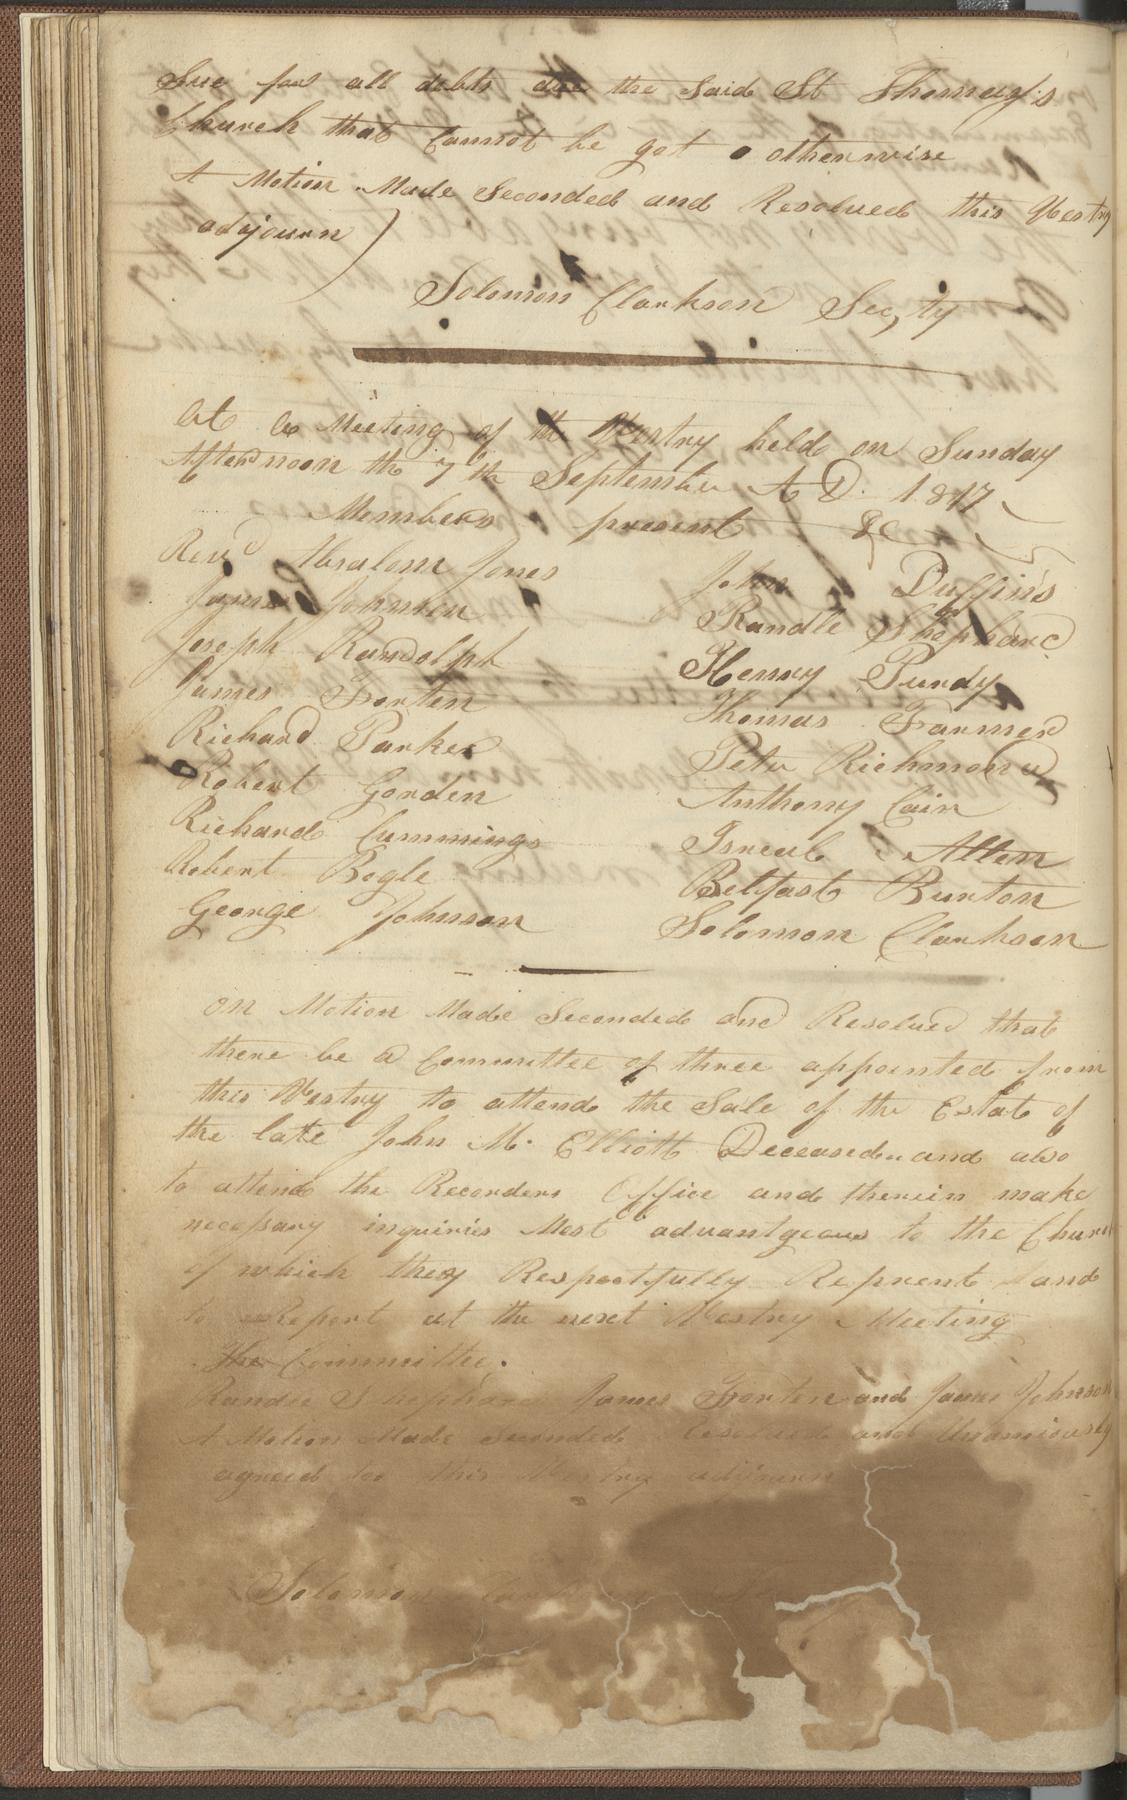 Sue for all debts due the Said St Thomas's
Church that Cannot be got otherwise
A Motion Made Seconded and Resolved this Vestry
adjourn
Solomon Clarkson Sec,ty
At a Meeting of the Vestry held on Sunday
Afternoon the 7th September A D. 1817
Members present &c
Revd Absalom Jones
James Johnson
Joseph Randolph
James Forten
Richard Parker
Robert Gorden
Richard Cummings
Robert Bogle
George Johnson
John Duffins
Randle Shephard
Henry Purdy
Thomas Farmer
Peter Richmond
Anthony Cain
Isreal Allen
Belfast Burton
Solomon Clarkson
on Motion Made Seconded and Resolved that
there be a Committee of three appointed from
this Vestry to attend the Sale of the Estate of
the late John M. Elliott Deceased and also
to attend the Recorders Office and therein make
necessary inquiries Most advantgeous to the Church
of which they Respectfully Reprent and
to Report at the next Vestry Meeting
The Committee.
Randle Shephard James Forten and James Johnson
A Motion Made Seconded Resolved and Unamiously
agreed too this Vestry adjourn
Solomon Clarkson